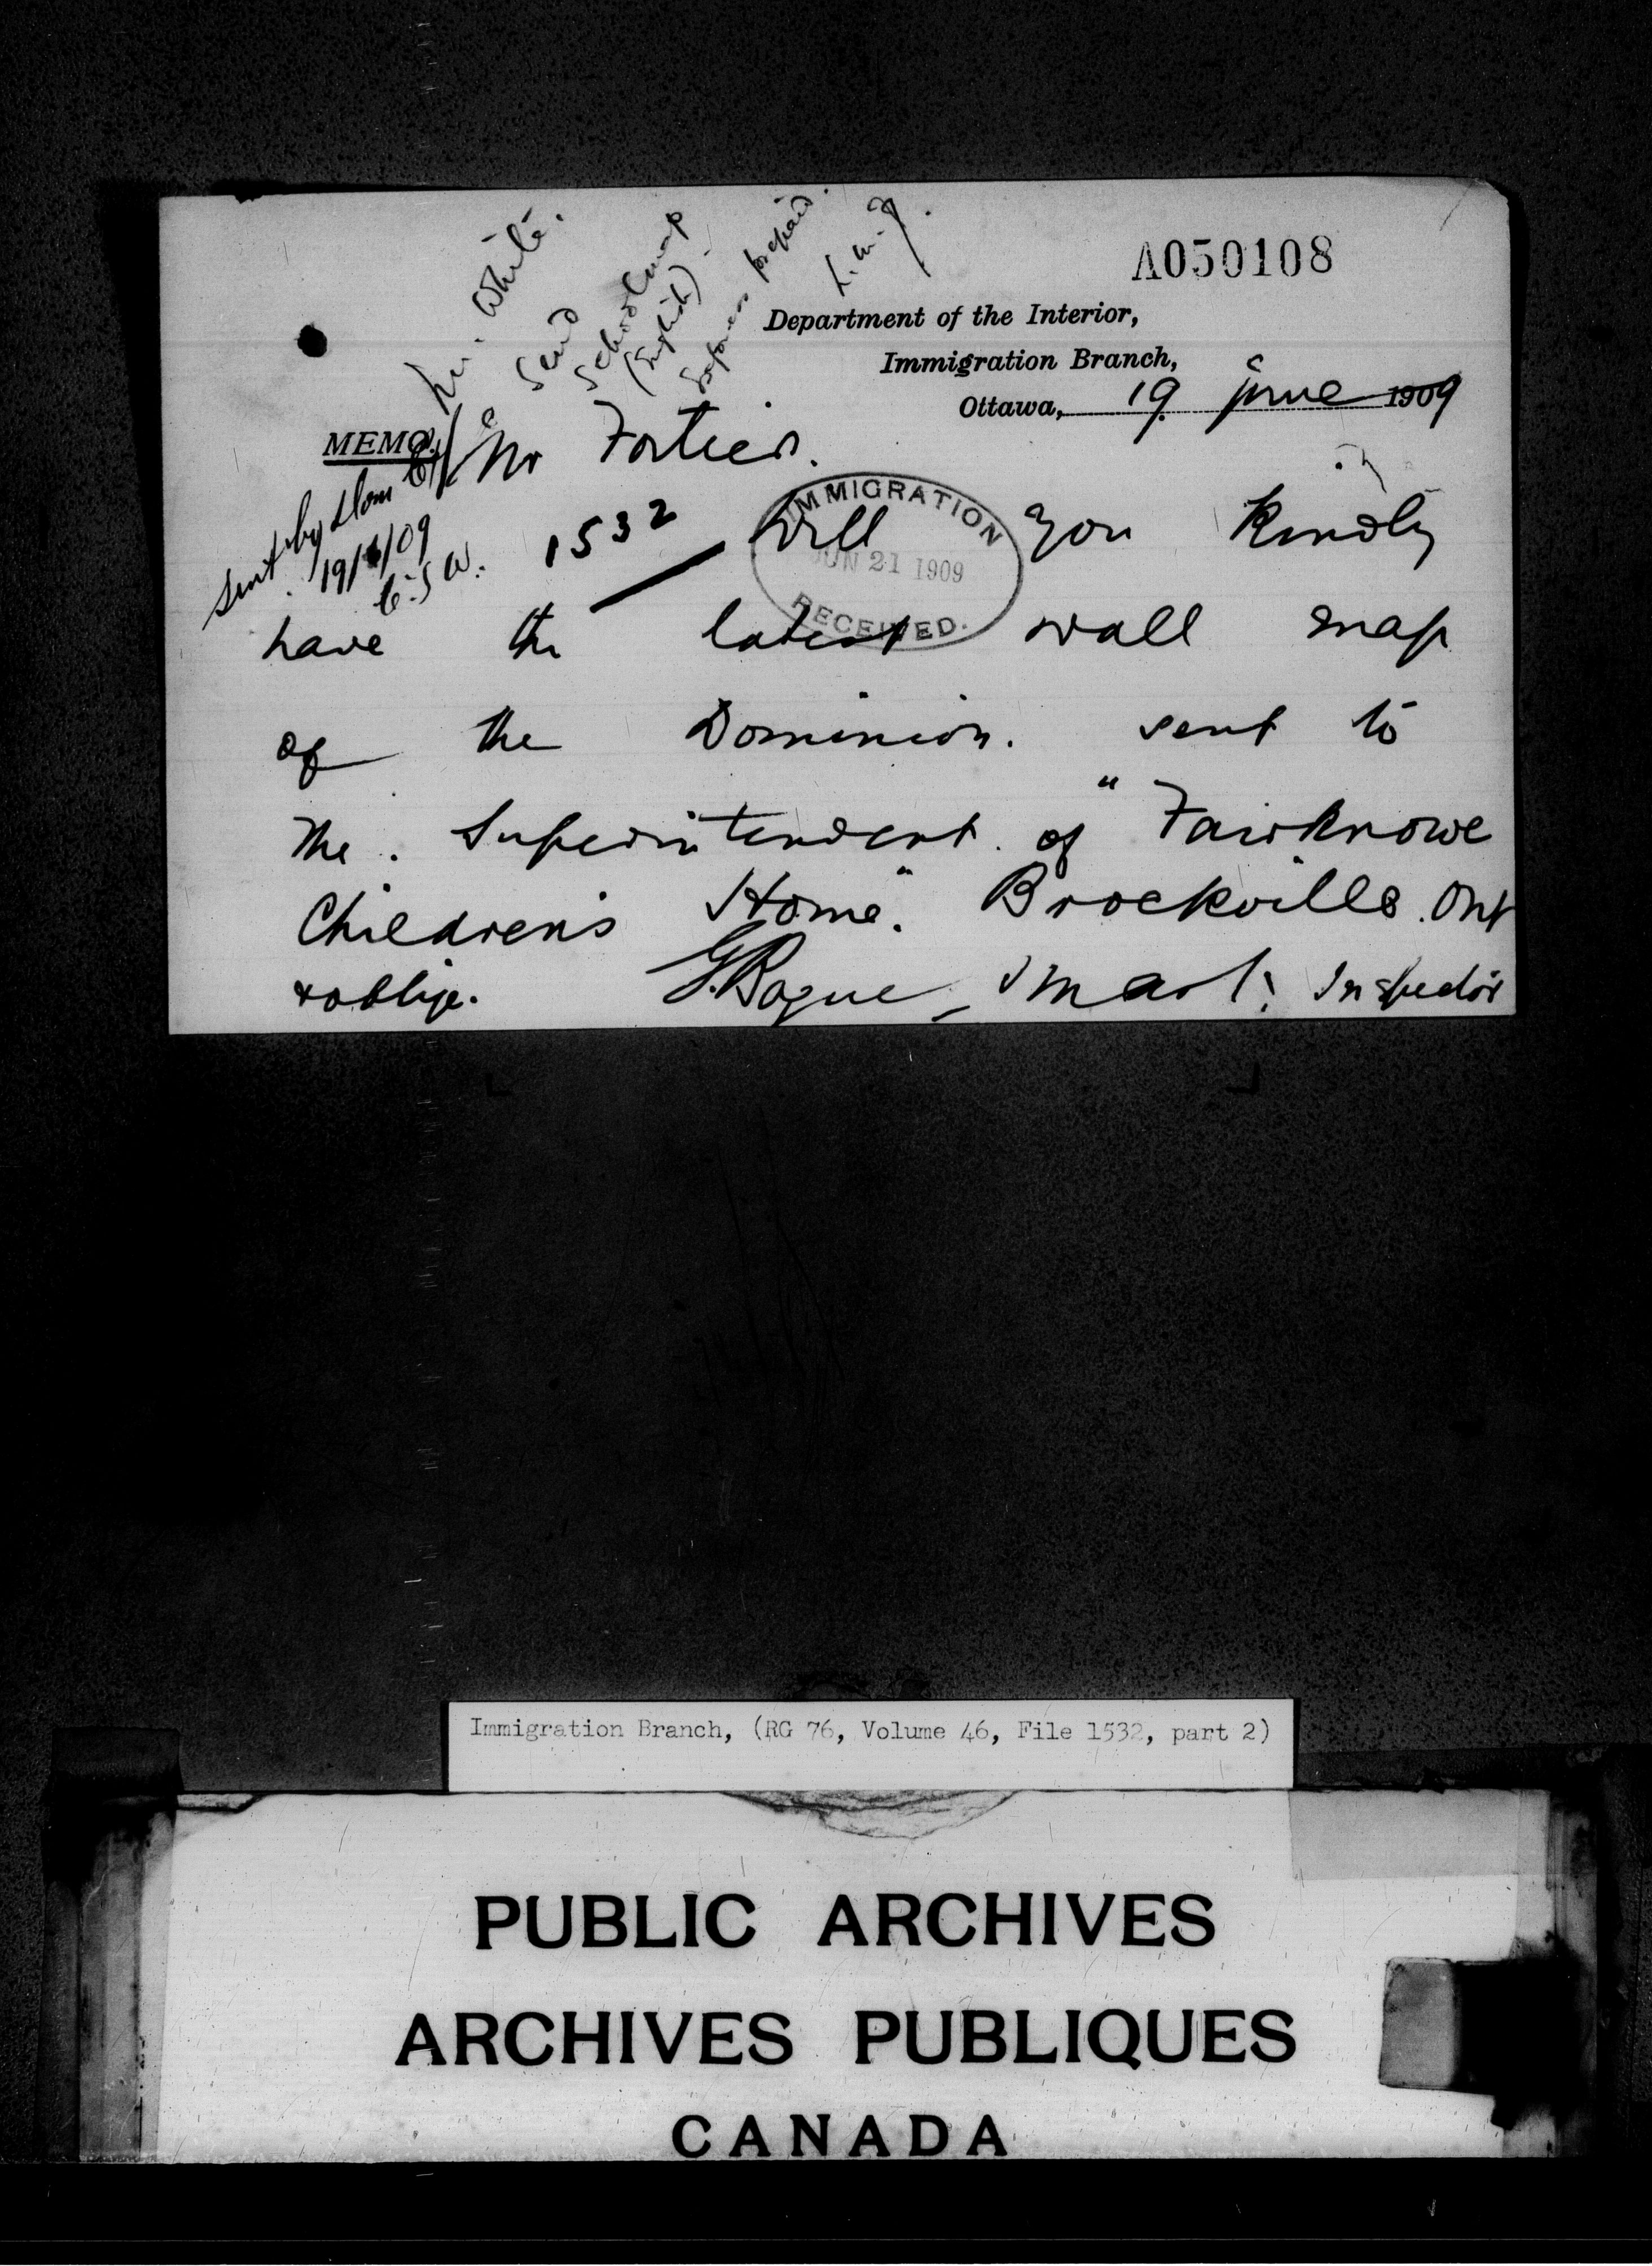 A050108
Mr. White.
Send
School map
(English)
Express prepaid.
L.M.F.
Department of the Interior,
Immigration Branch,
Ottawa, 19 June 1909
MEMO.
Mr Fortier.
Sent by Dom Ex
19/6/09
C.S.W.
1532
IMMIGRATION
JUN 21 1909
RECEIVED.
Will you kindly
have the latest wall map
of the Dominion. sent to
The. Superintendent of "Fairknowe
Children's Home". Brockville. Ont
& oblige. G. Bogue Smart. Inspector
Immigration Branch, (RG 76, Volume 46, File 1532, part 2)
PUBLIC ARCHIVES
ARCHIVES PUBLIQUES
CANADA